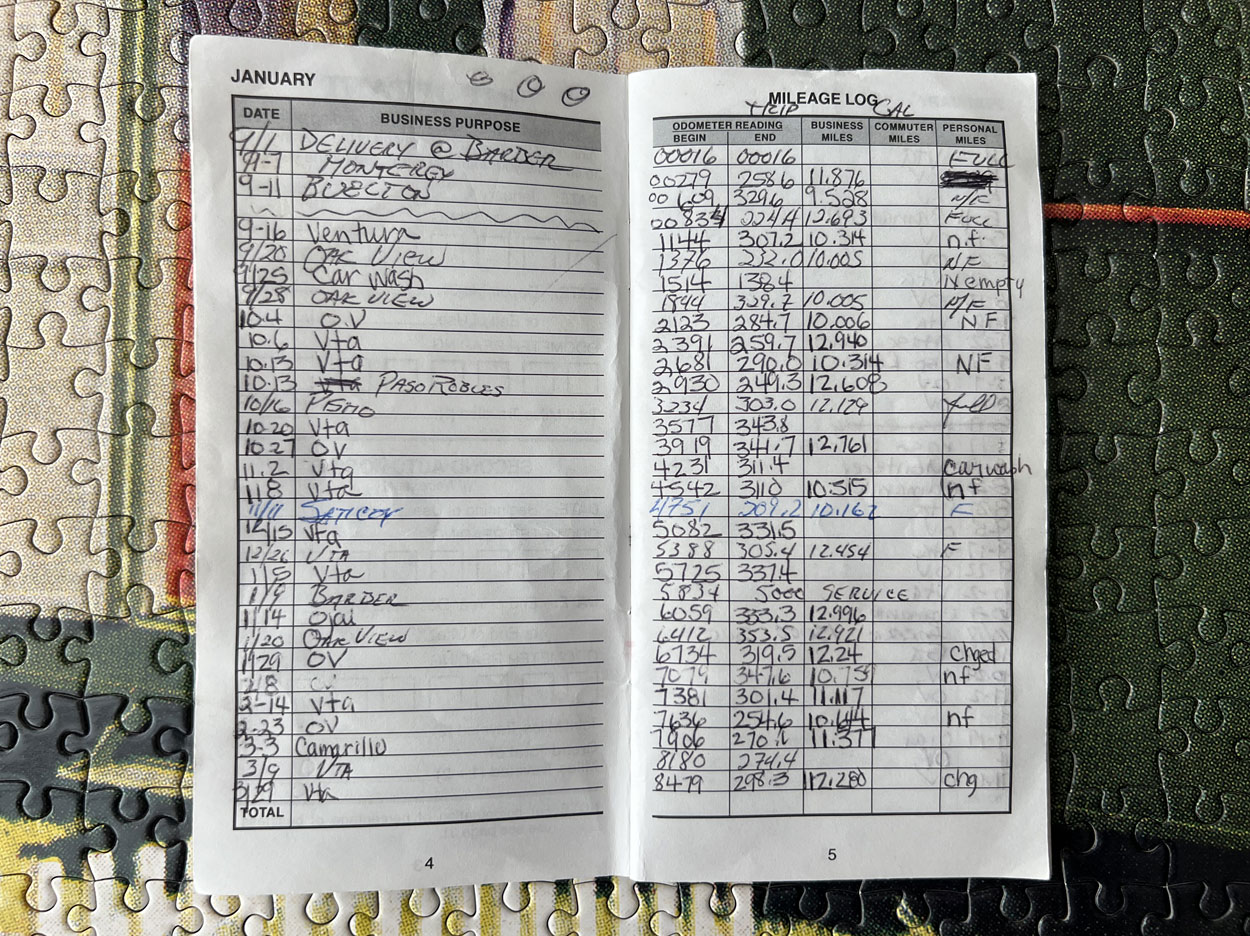 JANUARY
MILEAGE LOG
TRIP GAL
DATE BUSINESS PURPOSE ODOMETER READING BUSINESS MILES COMMUTER MILES PERSONAL MILES
BEGIN END
9/1 DELIVERY @ BARBER 00016 00016 FULL
9-7 MONTEREY 00279 258.6 11.876
9-11 BUELTON 00609 329.6 9.528 N/F
00834 224.4 12.693 FULL
9-16 Ventura 1144 307.2 10.314 n.f.
9/20 OAK VIEW 1376 232.0 10.005 NF
9/25 Car Wash 1514 138.4 empty
9/28 OAK VIEW 1844 329.7 10.005 N/F
10.4 O.V 2123 284.7 10.006 NF
10.6 Vta 2391 259.7 12.940
10.13 Vta 2681 290.0 10.314 NF
10.13 PASO ROBLES 2930 249.3 12.608
10/16 PISMO 3234 303.0 12.129 full
10.20 Vta 3577 343.8
10.27 OV 3919 341.7 12.761
11.2 Vta 4231 311.4 car wash
11.8 Vta 4542 311.0 10.515 nf
11/11 SATICOY 4751 209.2 10.162 F
12/15 Vta 5082 331.5
12/26 VTA 5388 305.4 12.454 F
1/5 Vta 5725 337.4
1/9 BARBER 5834 5000 SERVICE
1/14 Ojai 6059 333.3 12.996
1/20 OAK VIEW 6412 353.5 12.921
1/29 OV 6734 319.5 12.24 chged
2/8 7079 347.6 10.75 nf
2-14 Vta 7381 301.4 11.117
2-23 OV 7636 254.6 10.644 nf
3-3 Camarillo 7906 270.1 11.377
3/9 VTA 8180 274.4
3/29 Vta 8479 298.3 12.280 chg
TOTAL
4
5